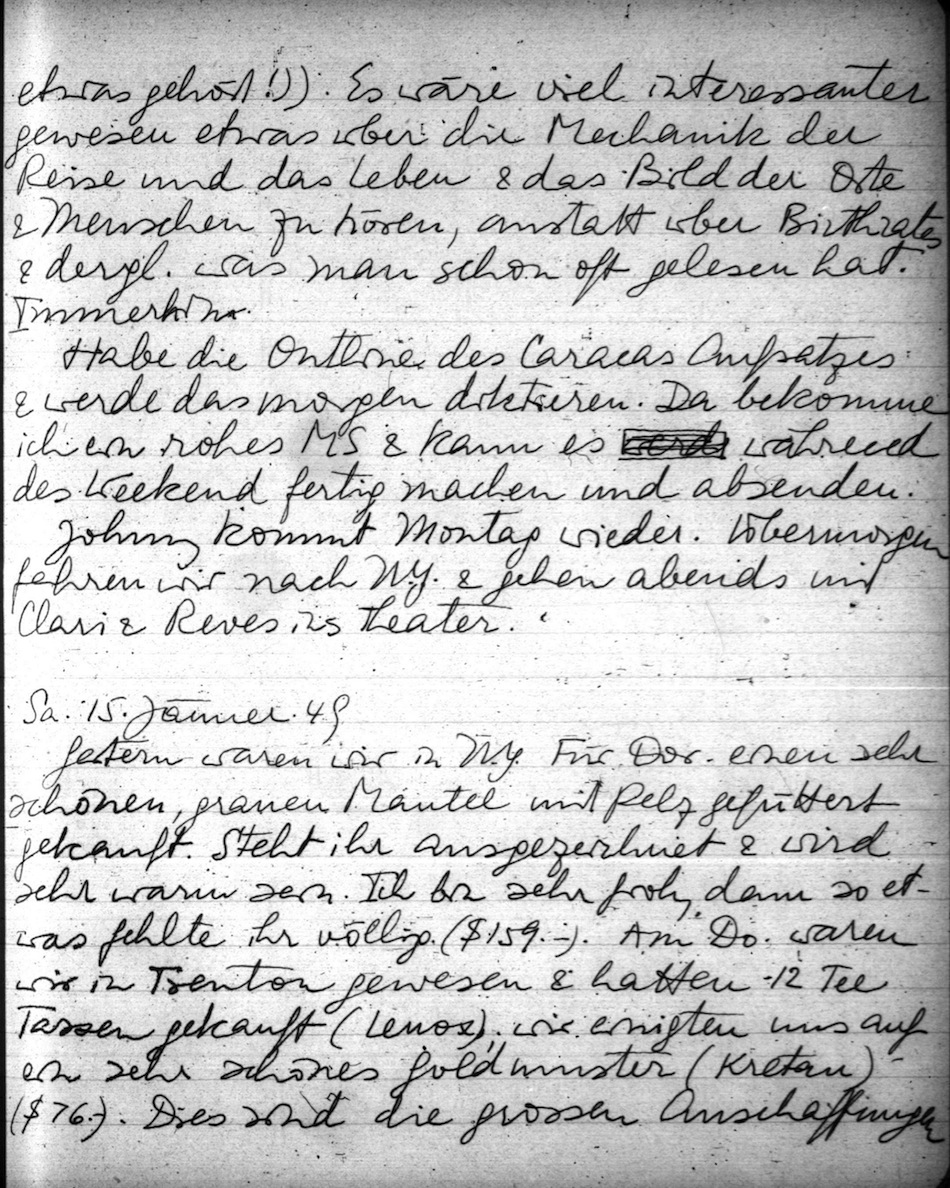 etwas gehört!)). Es wäre viel interessanter
gewesen etwas über die Mechanik der
Reise und das Leben & das Bild der Orte
& Menschen zu hören, anstatt über Birthrates
& dergl. was man schon oft gelesen hat.
Immerhin.
Habe die Outline des Caracas Aufsatzes
& werde das morgen diktieren. Da bekomme
ich ein rohes MS & kann es während
des Weekend fertig machen und absenden.
Johnny kommt Montag wieder. Übermorgen
fahren wir nach N.Y. & gehen abends mit
Clari & Reves ins Theater.
Sa. 15. Jänner 49
Gestern waren wir in N.Y. Für Dor. einen sehr
schönen, grauen Mantel mit Pelz gefüttert
gekauft. Steht ihr ausgezeichnet & wird
sehr warm sein. Ich bin sehr froh, denn so et-
was fehlte ihr völlig. ($159.-). Am Do. waren
wir in Trenton gewesen & hatten 12 Tee
Tassen gekauft (Lenox), wir einigten uns auf
ein sehr schönes Goldmuster (Kretan)
($76.-). Dies sind die grossen Anschaffungen